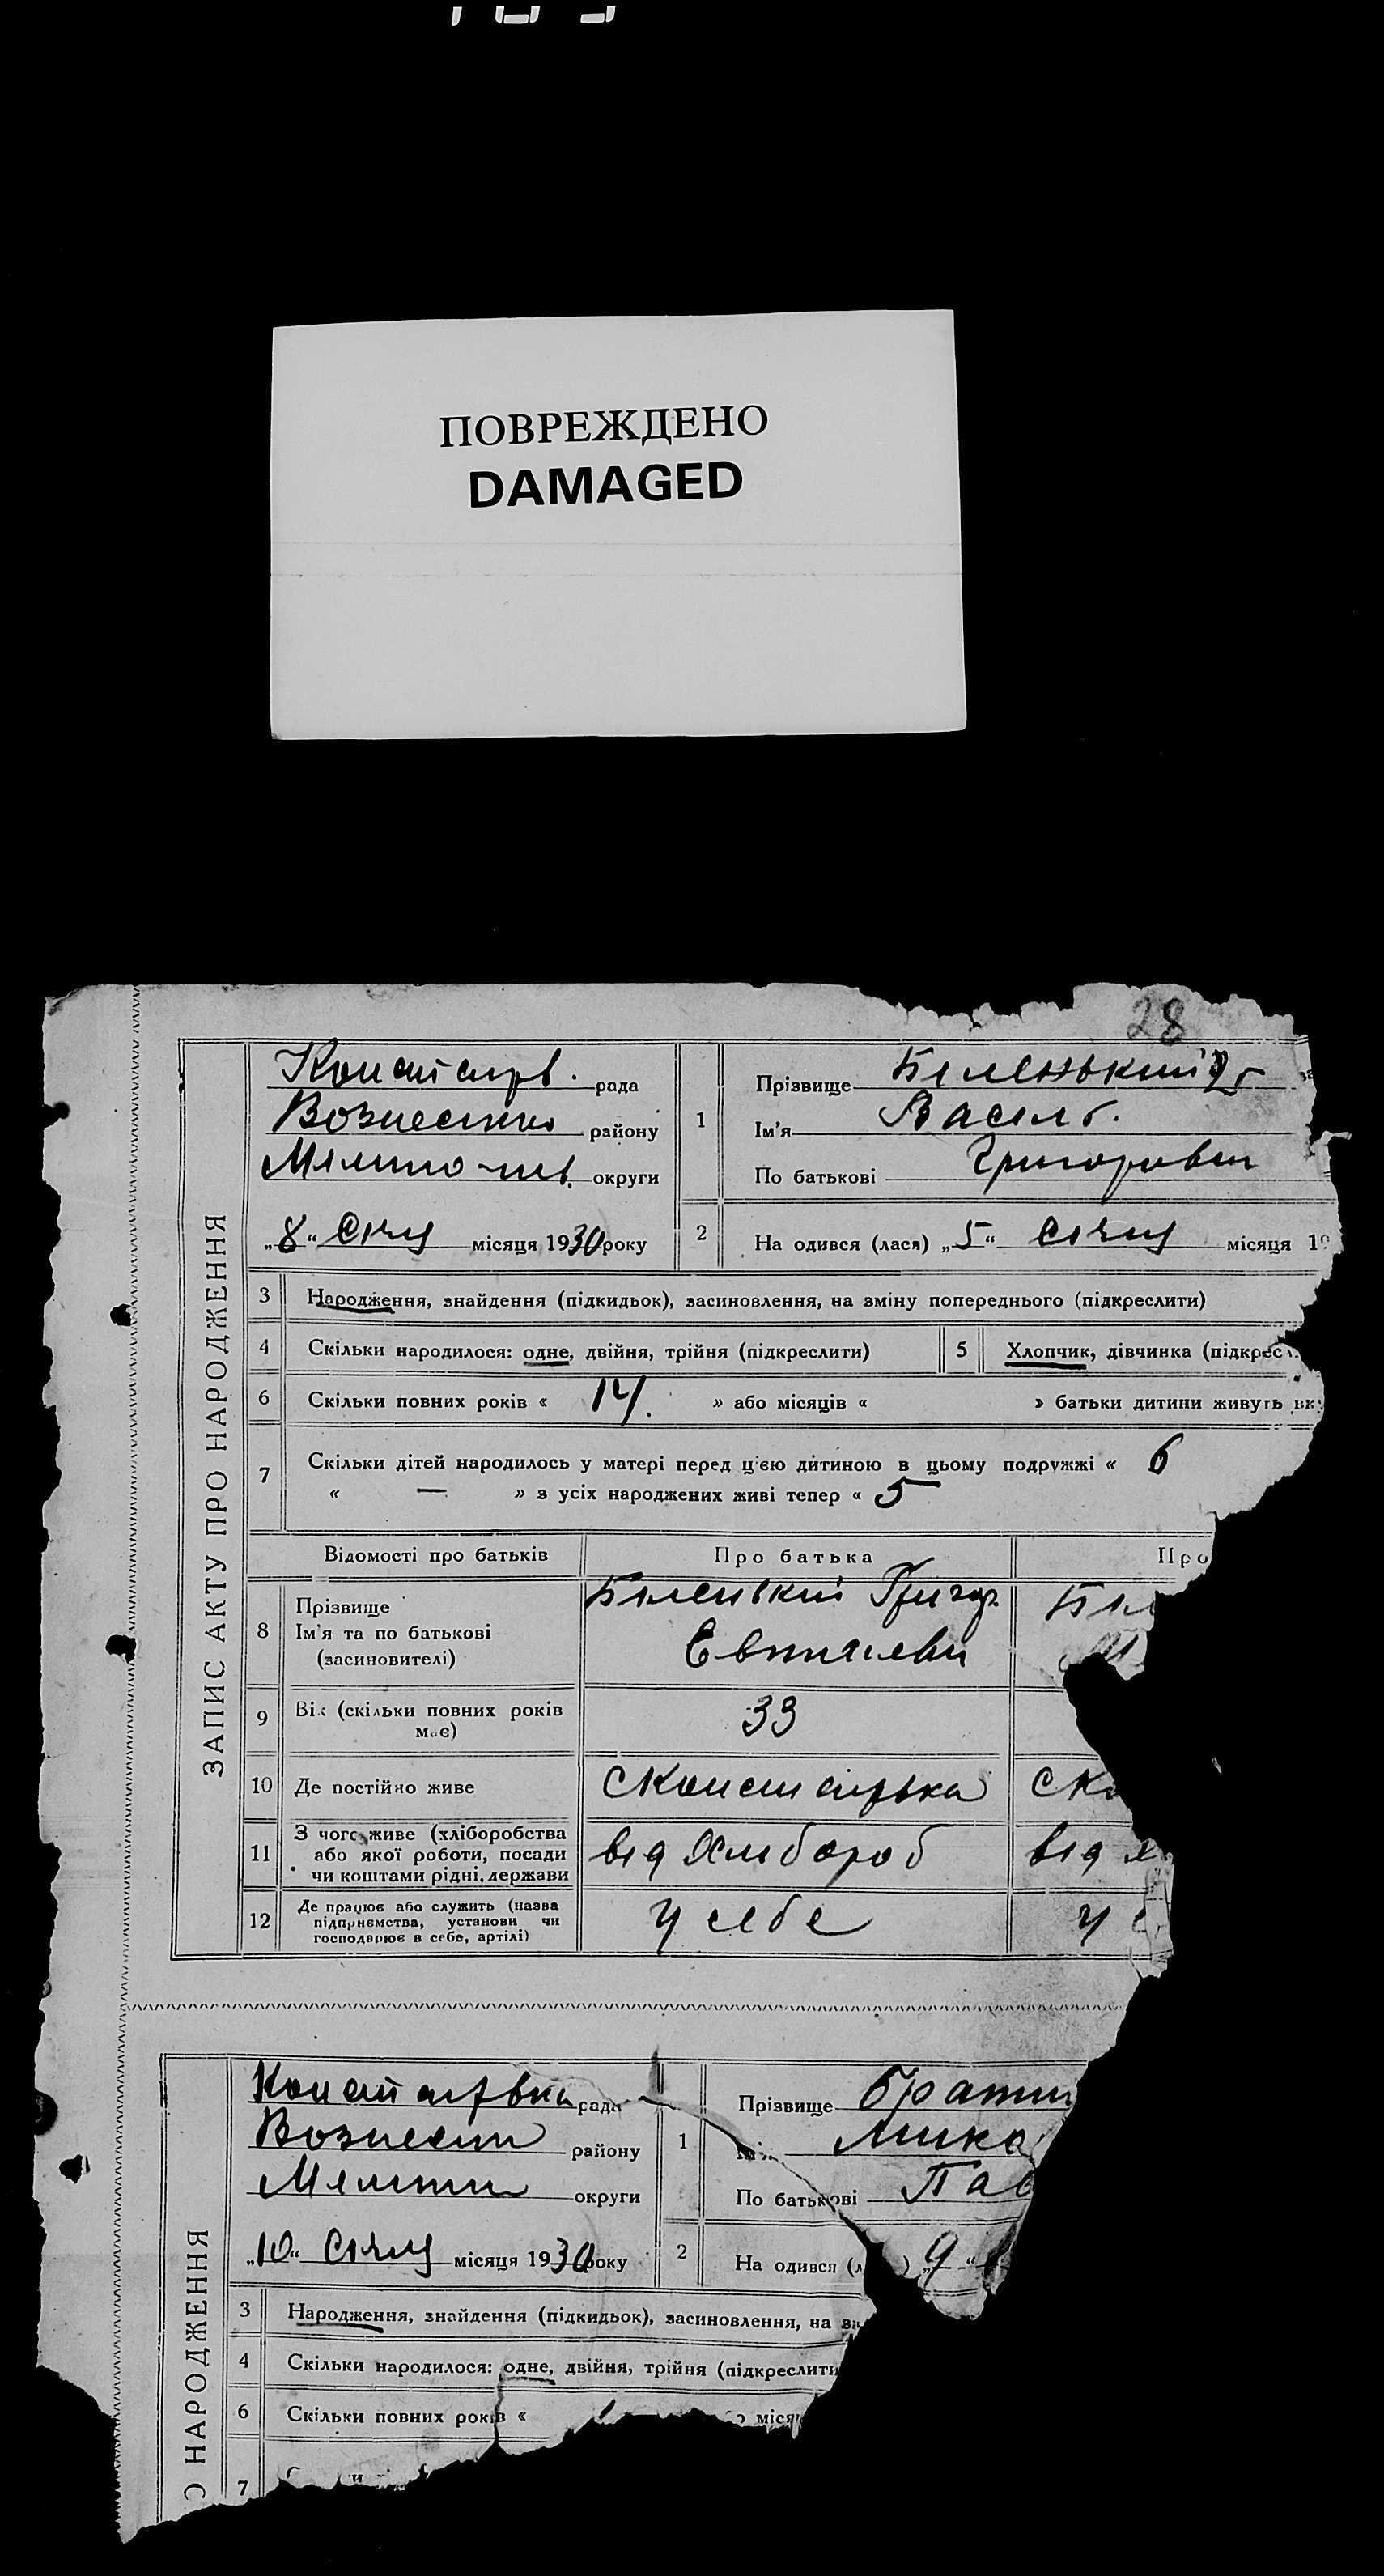 ПОВРЕЖДЕНО
DAMAGED
28
ЗАПИС АКТУ ПРО НАРОДЖЕННЯ
Констанрв. рада
району
округи
„8“ Січня місяця 1930 року
1
Прізвище Біленький
Ім'я Василь
По батькові Григорович
2
На одився (лася) „5“ січня місяця 19
3 Народження, знайдення (підкидьок), засиновлення, на зміну попереднього (підкреслити)
4 Скільки народилося: одне, двійня, трійня (підкреслити) 5 Хлопчик, дівчинка (підкрес
6 Скільки повних років « 14. » або місяців « » батьки дитини живуть вк
7 Скільки дітей народилось у матері перед цією дитиною в цьому подружжі « 6
« — » з усіх народжених живі тепер « 5
Відомості про батьків Про батька Про
8 Прізвище
Ім'я та по батькові
(засиновителі)
Біленький Григор
Біл
9 Вік (скільки повних років має)
33
10 Де постійно живе
11 З чого живе (хліборобства
або якої роботи, посади
чи коштами рідні, держави
від Хлібороб
від х
12 Де працює або служить (назва
підприємства, установи чи
господарює в себе, артілі)
у себе
у с
НАРОДЖЕННЯ
рада
району
округи
„10“ січня місяця 1930 року
1
Прізвище Братш
Мико
По батькові Пав
2
На одився (л ) „9“
3 Народження, знайдення (підкидьок), засиновлення, на з
4 Скільки народилося: одне, двійня, трійня (підкреслити
6 Скільки повних років « місяц
7